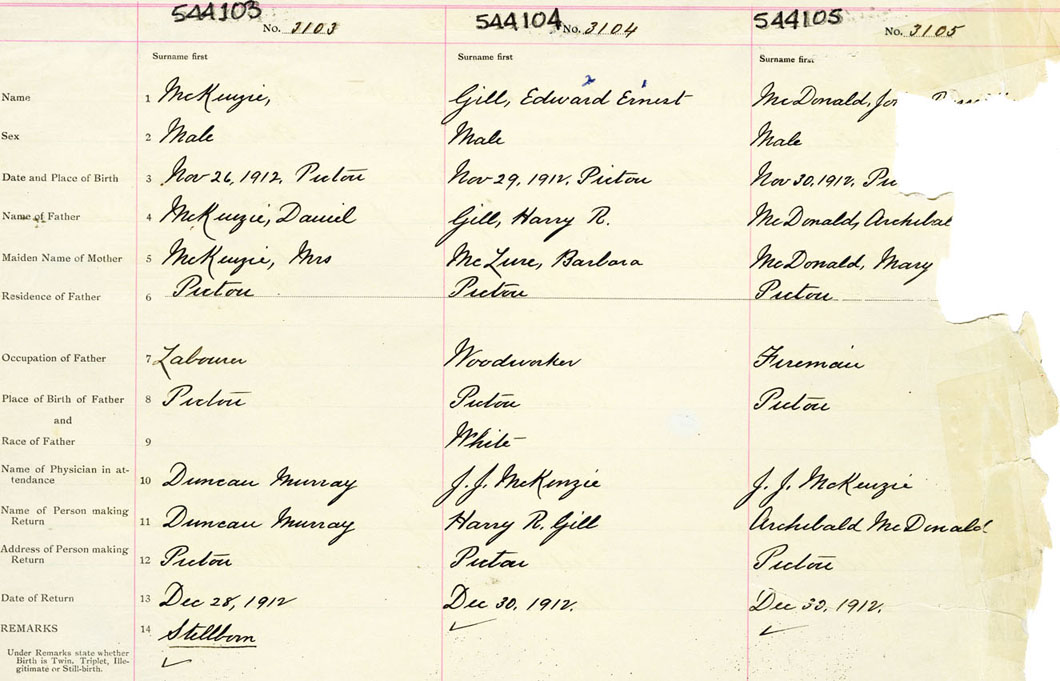 544103 544104 544105
No. 3103 No. 3104 No. 3105
Surname first Surname first Surname first
Name 1 McKenzie, Gill, Edward Ernest McDonald,
2 1
Sex 2 Male Male Male
Date and Place of Birth 3 Nov 26, 1912, Pictou Nov 29, 1912, Pictou Nov 30, 1912,
Name of Father 4 McKenzie, Daniel Gill, Harry R. McDonald, Archibal
Maiden Name of Mother 5 McKenzie, Mrs McLure, Barbara McDonald, Mary
Residence of Father 6 Pictou Pictou Pictou
Occupation of Father 7 Labourer Woodworker Fireman
Place of Birth of Father 8 Pictou Pictou Pictou
and
Race of Father 9 White
Name of Physician in at-
tendance 10 Duncan Murray J. J. McKenzie J. J. McKenzie
Name of Person making
Return 11 Duncan Murray Harry R. Gill Archibald McDonald
Address of Person making
Return 12 Pictou Pictou Pictou
Date of Return 13 Dec 28, 1912 Dec 30, 1912. Dec 30, 1912.
REMARKS 14 Stillborn
Under Remarks state whether
Birth is Twin, Triplet, Ille-
gitimate or Still-birth.